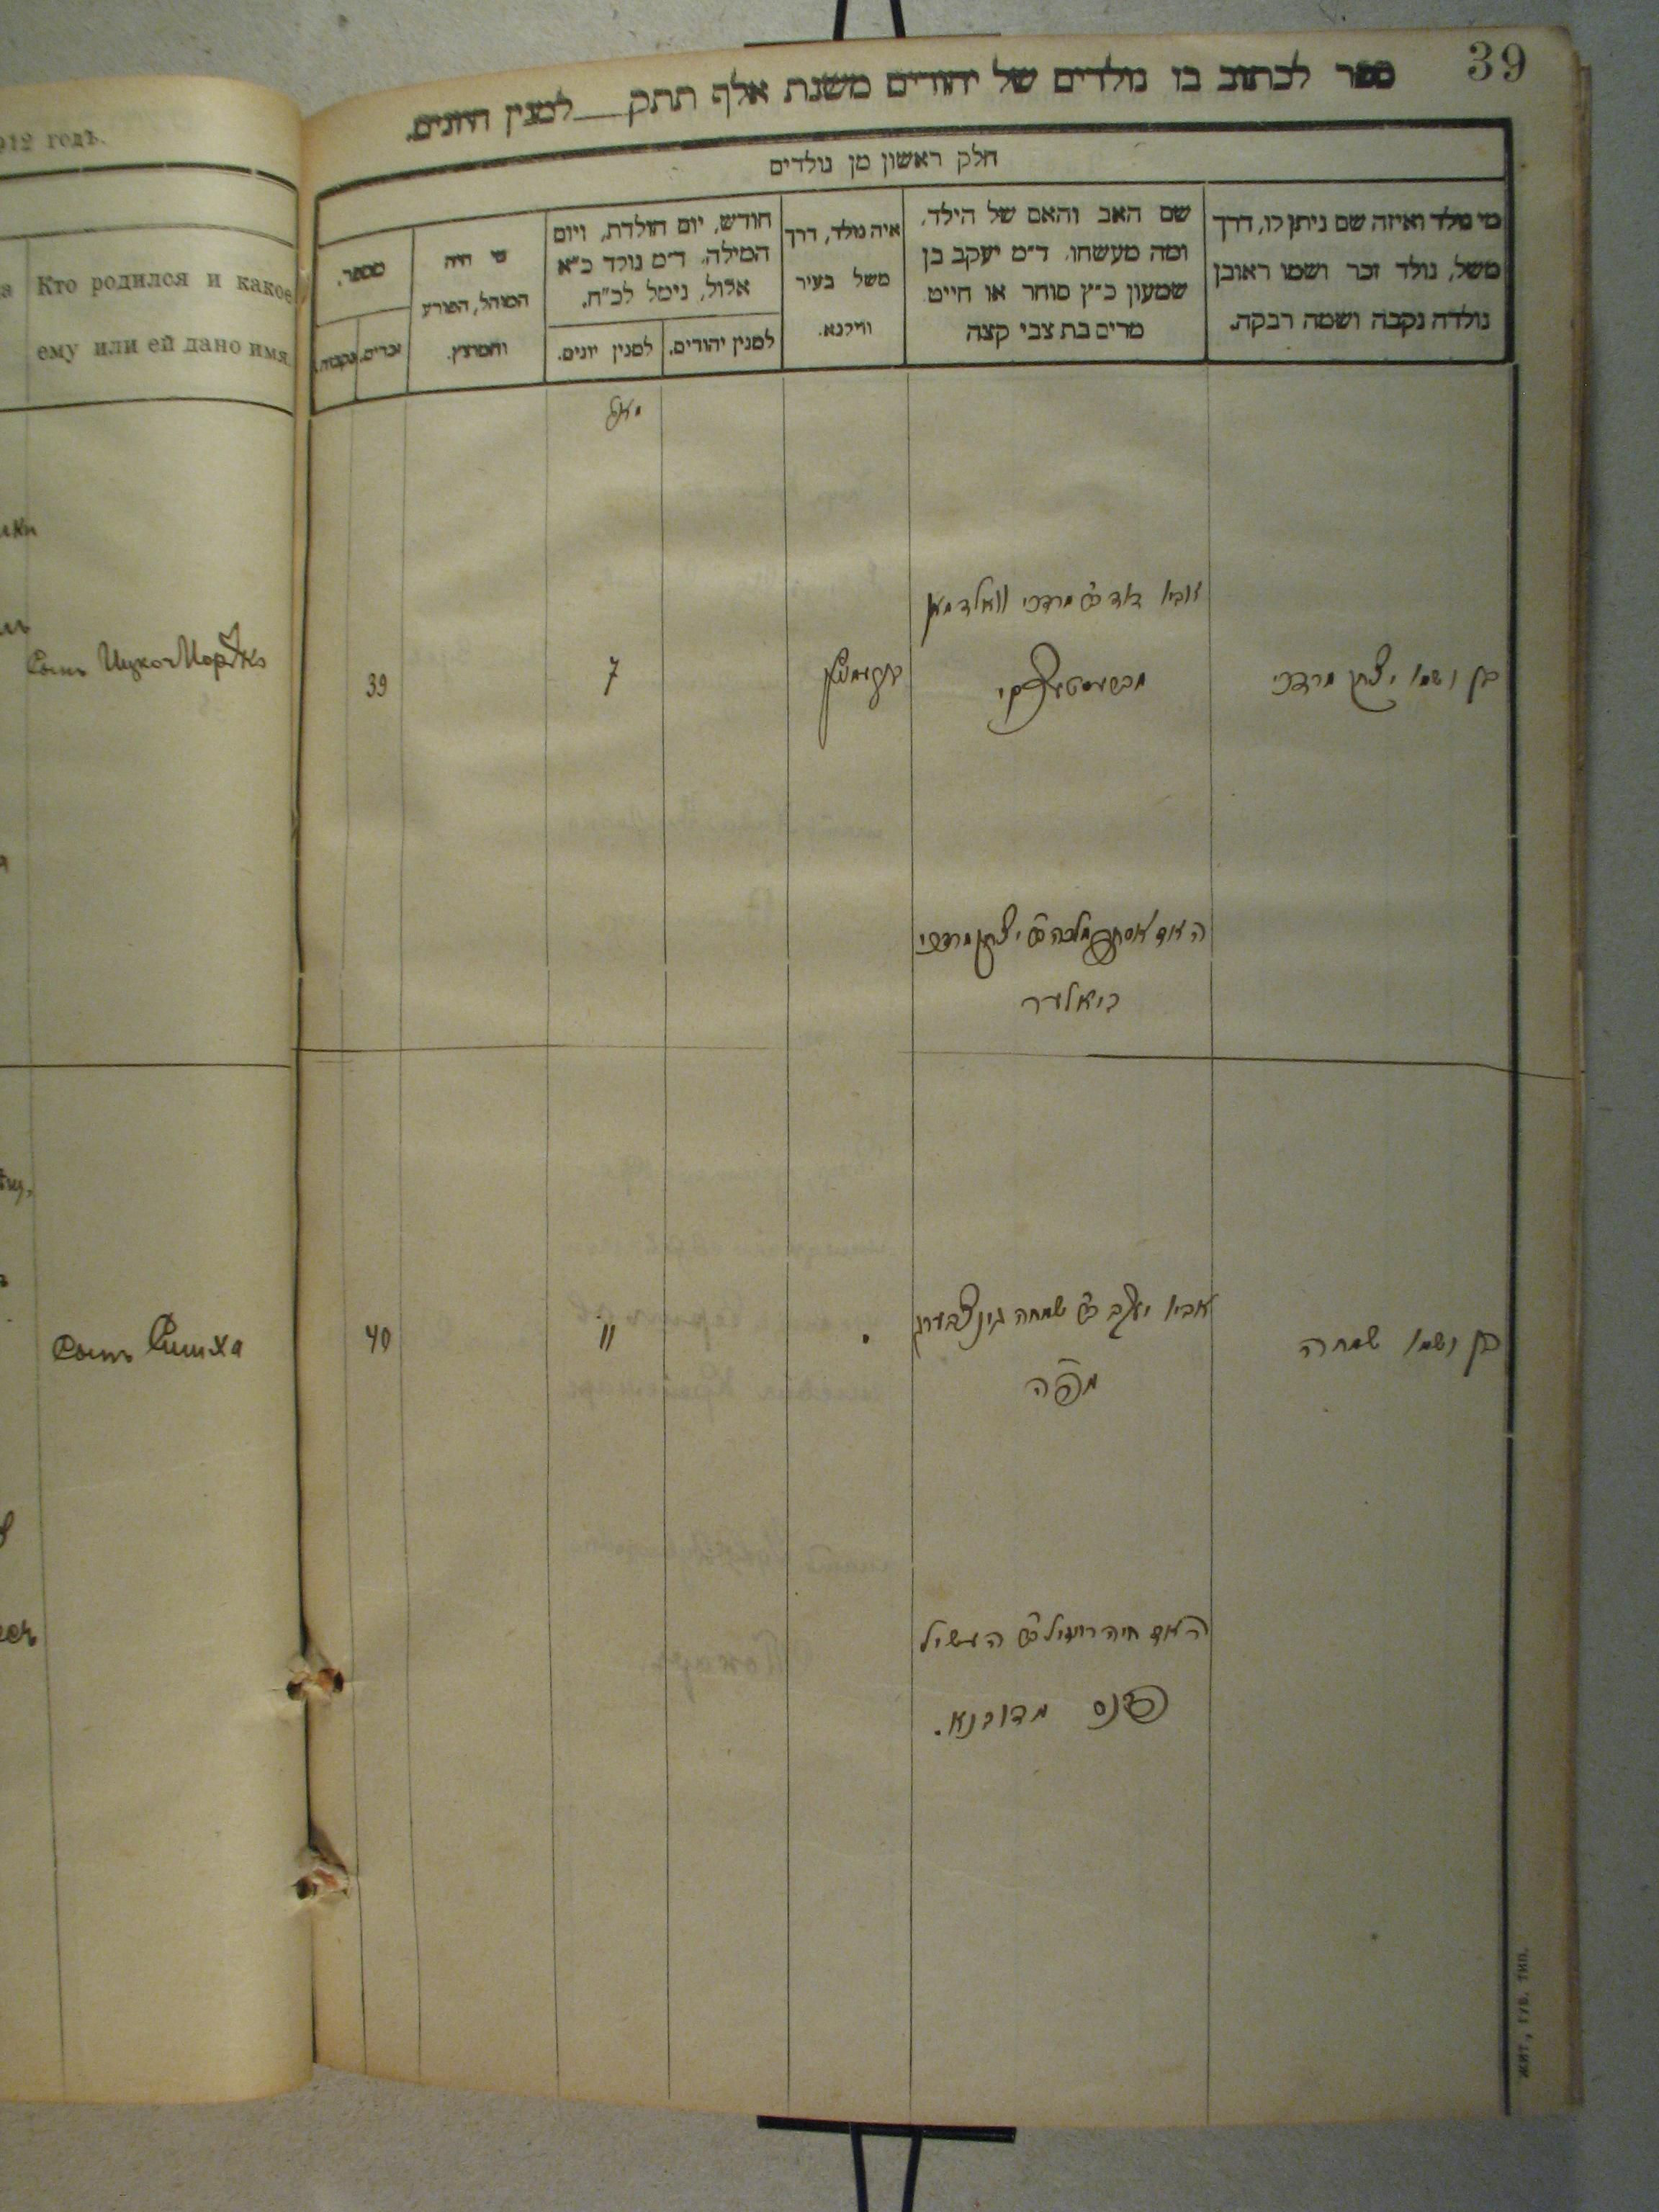 39
ספר לכתוב בו נולדים של יהודים משנת אלף תתק__למנין היונים.
חלק ראשון מן נולדים
מי נולד ואיזה שם ניתן לו, דרך
משל, נולד זכר ושמו ראובן
נולדה נקבה ושמה רבקה.
שם האב והאם של הילד,
ומה מעשהו, ד״מ יעקב בן
שמעון כ״ץ סוחר או חייט
מרים בת צבי קצה
איה נולד, דרך
משל בעיר
ווילנא.
חודש, יום הולדת, ויום
המילה, ד״מ נולד כ״א
אלול, נימל לכ״ח.
למנין יהודים.
למנין יונים.
מי היה
המוהל, הפורע
והמוצץ.
מספר.
זכרים.
נקבות.
בן ושמו יצחק מרדכי
אביו דוד ב״ר מרדכי וואלדמאן
7
39
האם מלכה ב״ר יצחק מרדכי
ביאלער
בן ושמו שמחה
אביו יעקב ב״ר שמחה גינצבערג
מפה
11
40
האם חיה רחל ב״ר העשיל
מדובנא.
912 годъ.
Кто родился и какое
ему или ей дано имя.
Сынъ Ицко-Мордко
Сынъ Симха
ЖИТ. ГУБ. ТИП.